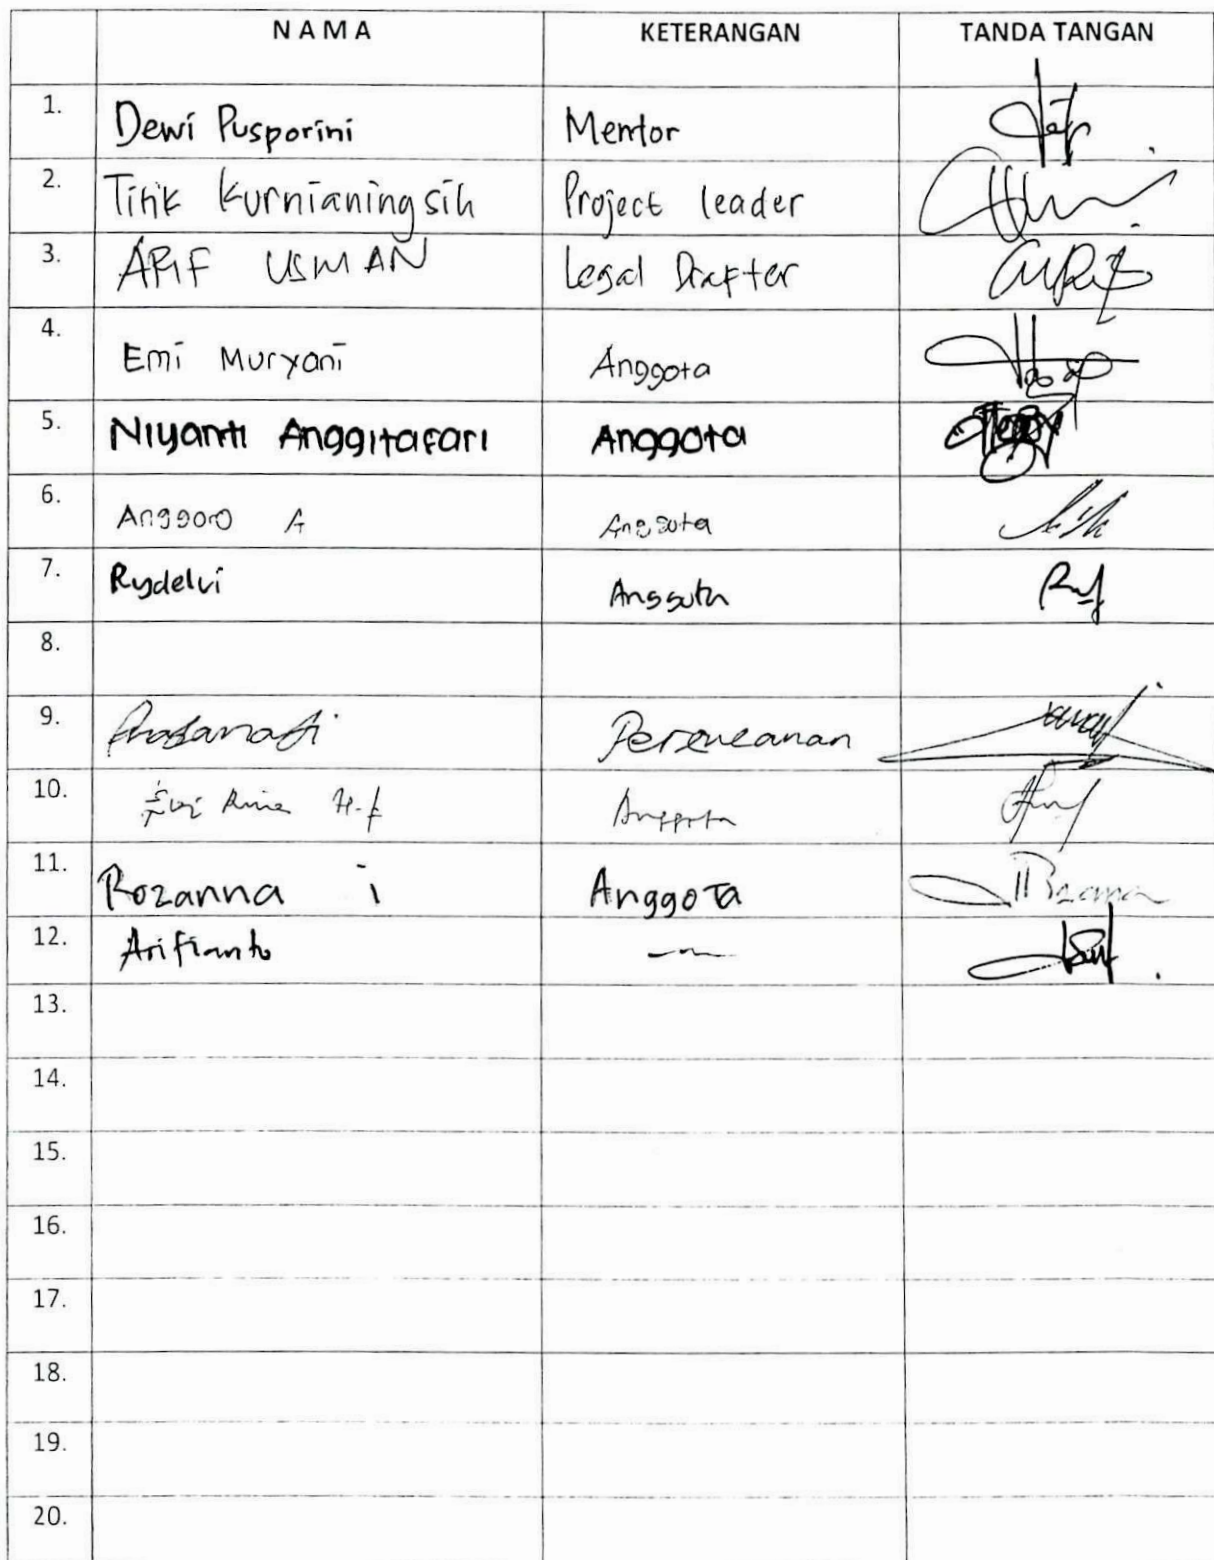 N A M A KETERANGAN TANDA TANGAN
1. Dewi Pusporini Mentor
2. Titik Kurnianingsih Project leader
3. ARIF USMAN Legal Drafter
4. Emi Muryani Anggota
5. Niyanti Anggitasari Anggota
6. Anggoro A Anggota
7. Rydelvi Anggota
8.
9. Perencanan
10. Anggota
11. Rozanna i Anggota
12. Arifianto
13.
14.
15.
16.
17.
18.
19.
20.